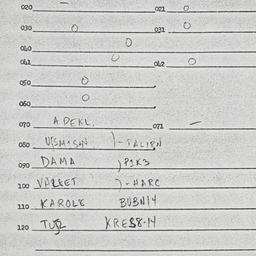 020 — 021 0
030 0 031 0
040 0
041 0 042 0
050 0
060 0
070 A DEKL. 071 —
080 )-TALIRN
090 DAMA )PIK3
100 )-HARC
110 KAROLE BUBNI4
120 KRESS-14